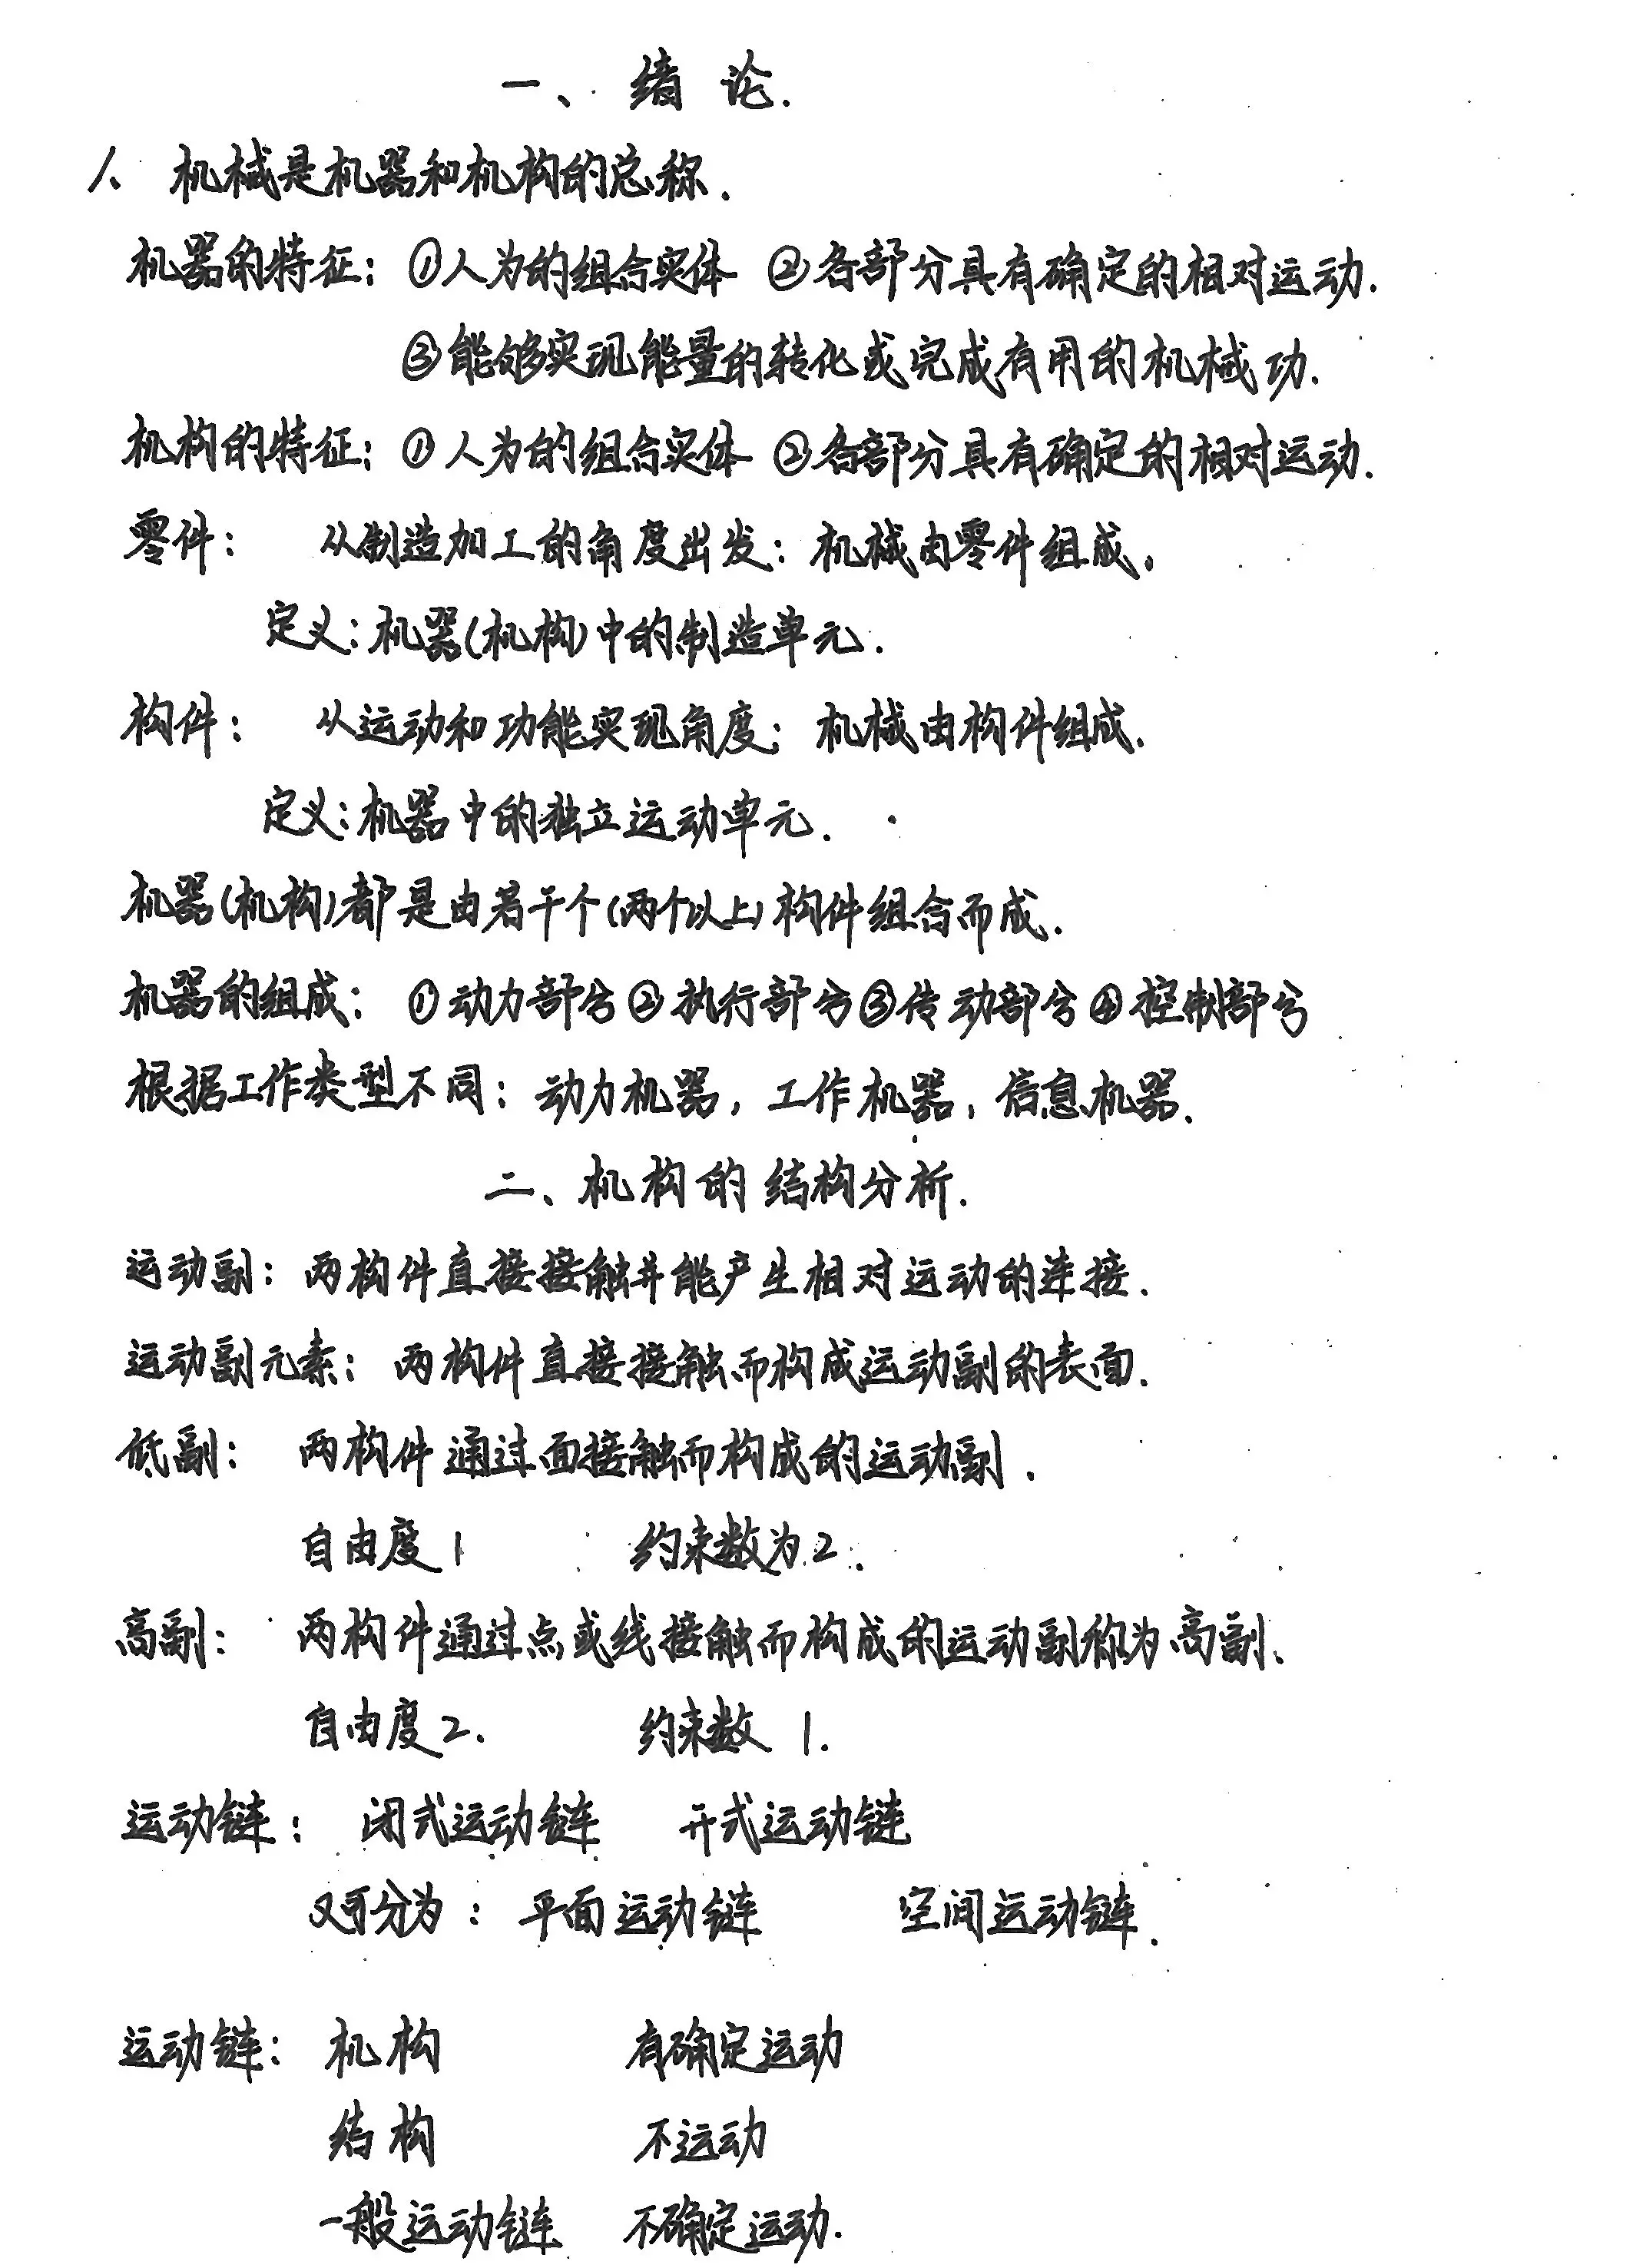 一、绪论.
1、机械是机器和机构的总称.
机器的特征: ①人为的组合实体 ②各部分具有确定的相对运动.
③能够实现能量的转化或完成有用的机械功.
机构的特征: ①人为的组合实体 ②各部分具有确定的相对运动.
零件: 从制造加工的角度出发: 机械由零件组成.
定义: 机器(机构)中的制造单元.
构件: 从运动和功能实现角度: 机械由构件组成.
定义: 机器中的独立运动单元.
机器(机构)都是由若干个(两个以上)构件组合而成.
机器的组成: ①动力部分②执行部分③传动部分④控制部分
根据工作类型不同: 动力机器, 工作机器, 信息机器.
二、机构的结构分析.
运动副: 两构件直接接触并能产生相对运动的连接.
运动副元素: 两构件直接接触而构成运动副的表面.
低副: 两构件通过面接触而构成的运动副.
自由度1 约束数为2.
高副: 两构件通过点或线接触而构成的运动副称为高副、
自由度2. 约束数 1.
运动链: 闭式运动链 开式运动链
又可分为: 平面运动链 空间运动链.
运动链: 机构 有确定运动
结构 不运动
一般运动链 不确定运动.